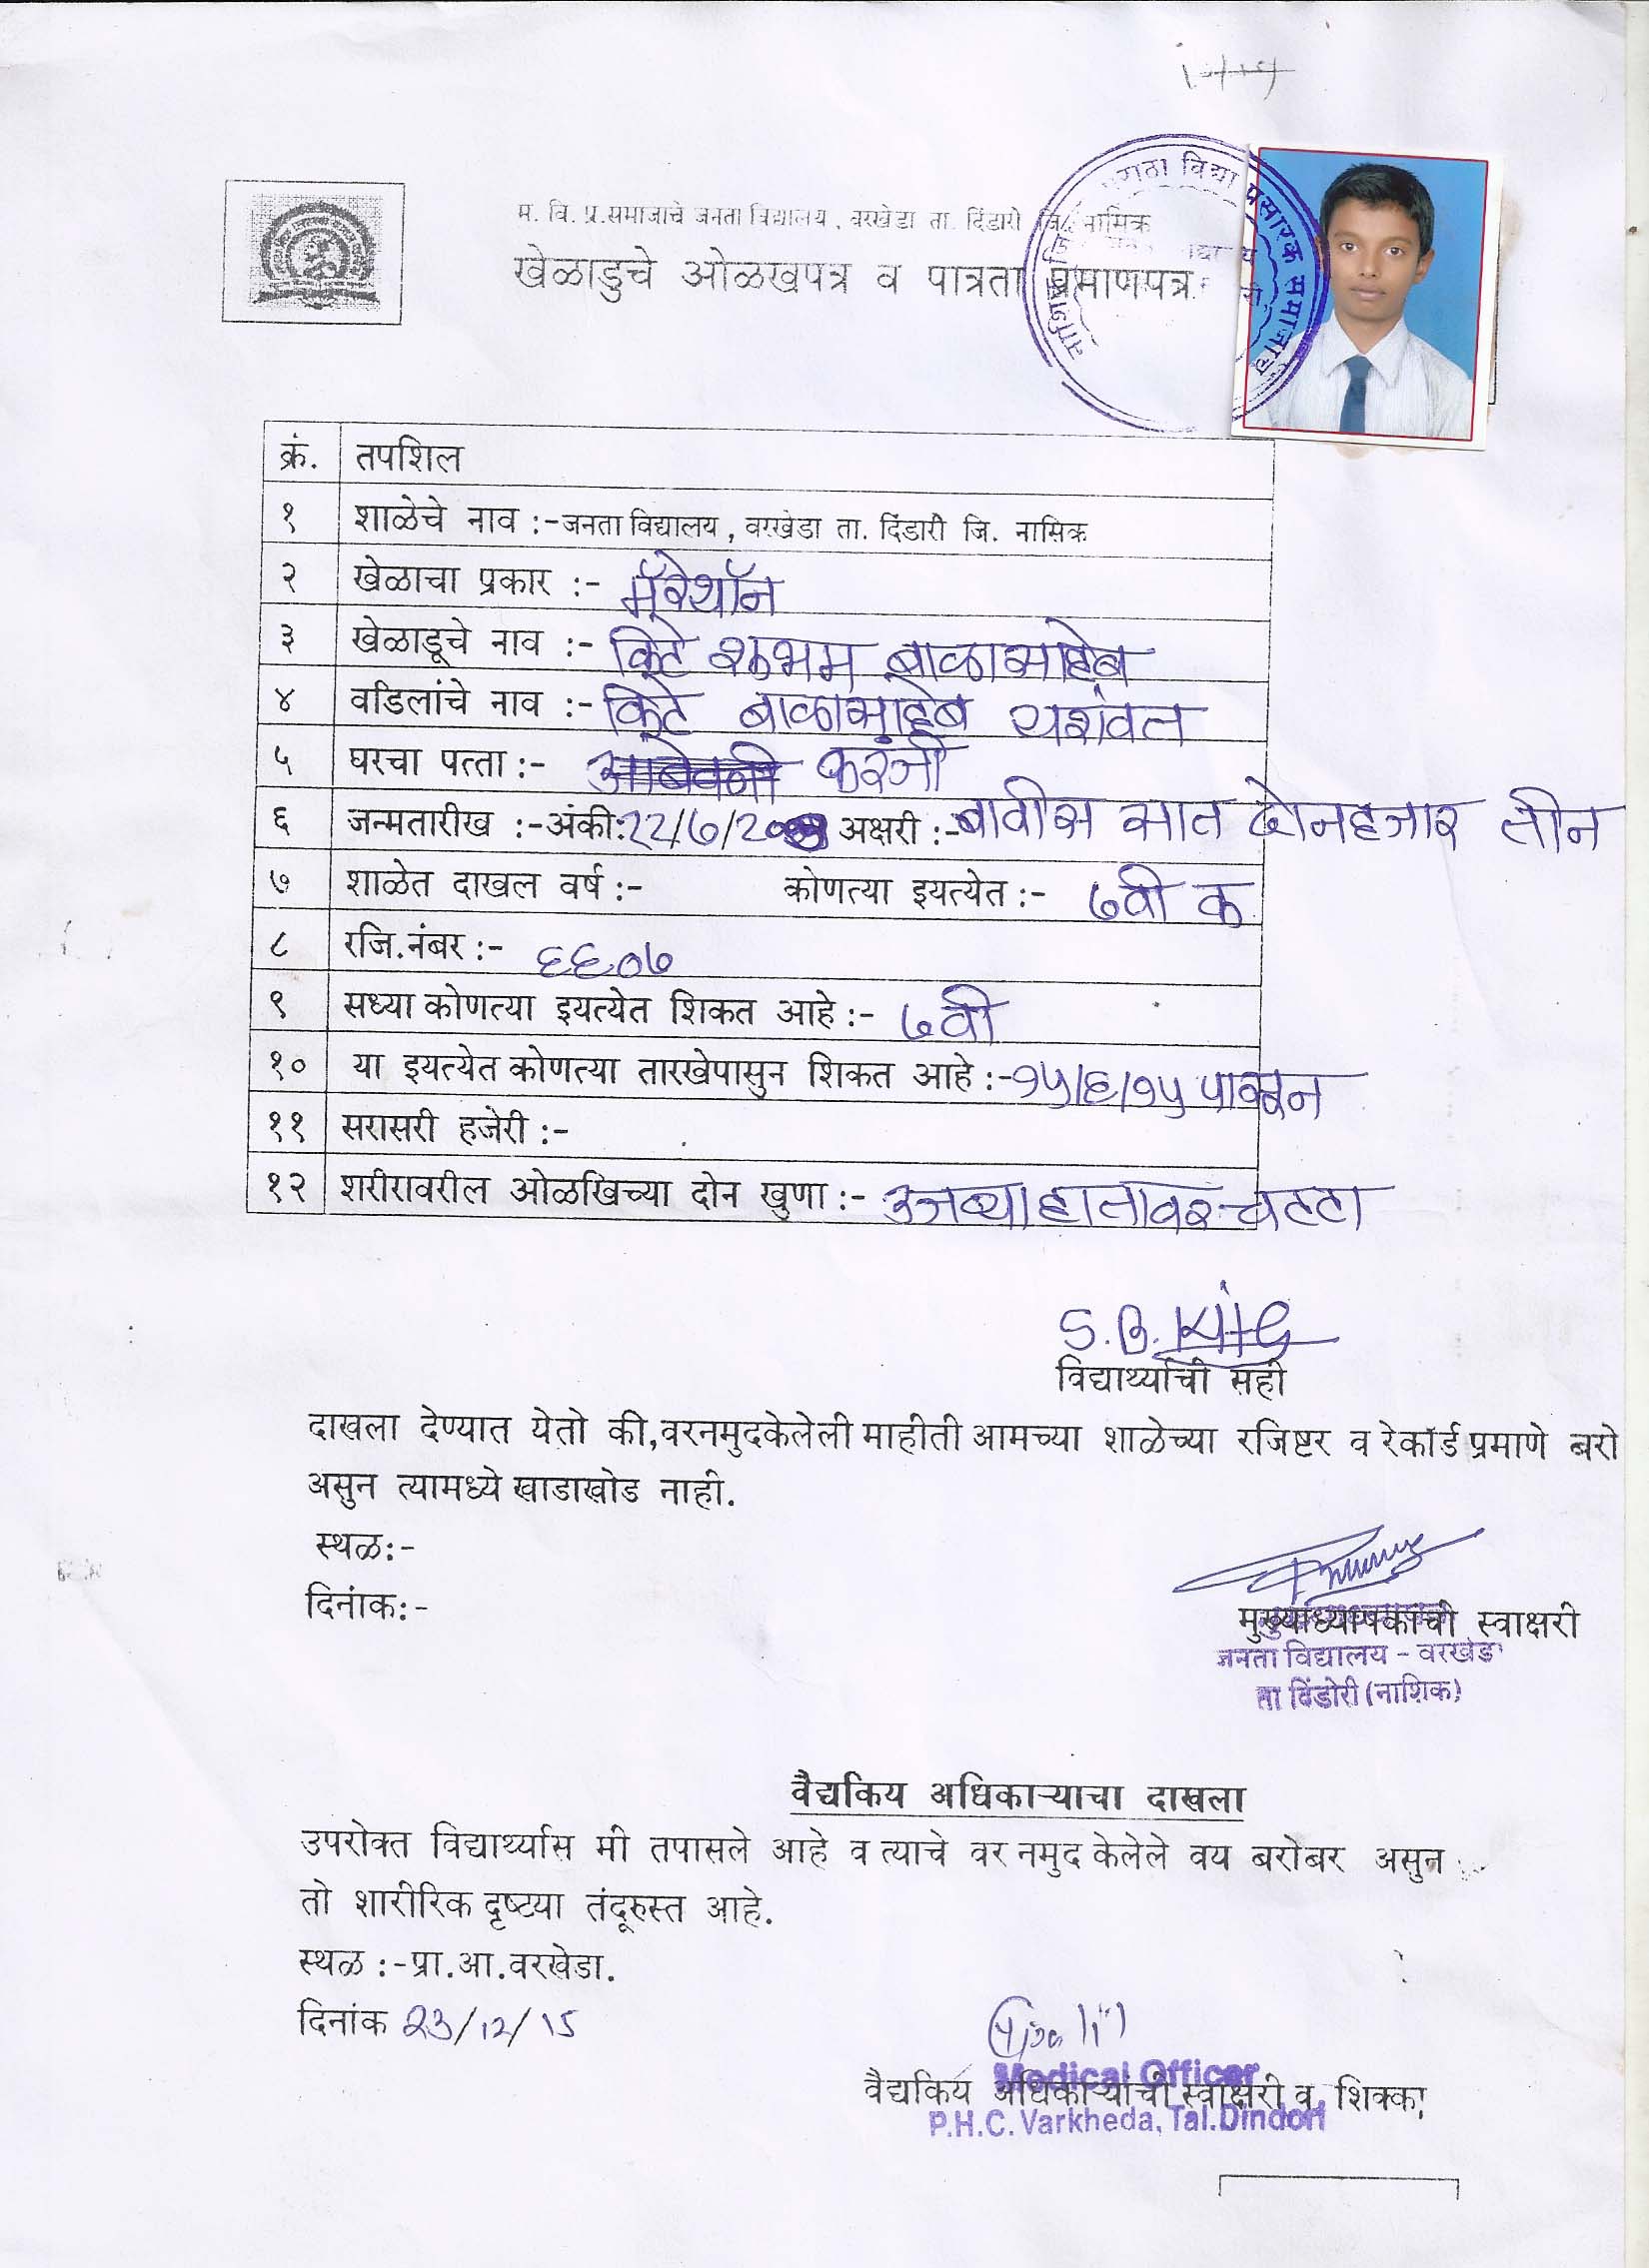 म. वि. प्र.समाजाचे जनता विद्यालय, वरखेडा ता. दिंडारी जि. नासिक
खेळाडुचे ओळखपत्र व पात्रता प्रमाणपत्र
मराठा विद्या प्रसारक समाजाचे
क्रं. तपशिल
१ शाळेचे नाव :-जनता विद्यालय, वरखेडा ता. दिंडारी जि. नासिक
२ खेळाचा प्रकार :- मॅरेथॉन
३ खेळाडूचे नाव :- किटे शुभम बाळासाहेब
४ वडिलांचे नाव :- किटे बाळासाहेब यशवंत
५ घरचा पत्ता :- करंजी
६ जन्मतारीख :-अंकी:-२२/७/२००३ अक्षरी :-बावीस सात दोनहजार तीन
७ शाळेत दाखल वर्ष :- कोणत्या इयत्येत :- ७वी क
८ रजि.नंबर :- ६६०७
९ सध्या कोणत्या इयत्येत शिकत आहे :- ७वी
१० या इयत्येत कोणत्या तारखेपासुन शिकत आहे :-१५/६/१५ पासून
११ सरासरी हजेरी :-
१२ शरीरावरील ओळखिच्या दोन खुणा :- उजव्या हातावर चट्टा
S.B.
विद्यार्थ्याची सही
दाखला देण्यात येतो की,वरनमुदकेलेली माहीती आमच्या शाळेच्या रजिष्टर व रेकॉर्ड प्रमाणे बरो
असुन त्यामध्ये खाडाखोड नाही.
स्थळ:-
दिनांक:-
मुख्याध्यापकांची स्वाक्षरी
जनता विद्यालय - वरखेडा
ता दिंडोरी (नाशिक)
वैद्यकिय अधिकाऱ्याचा दाखला
उपरोक्त विद्यार्थ्यास मी तपासले आहे व त्याचे वर नमुद केलेले वय बरोबर असुन
तो शारीरिक दृष्टया तंदूरुस्त आहे.
स्थळ :-प्रा.आ.वरखेडा.
दिनांक 23/12/15
Medical Officer
वैद्यकिय अधिकाऱ्याची स्वाक्षरी व शिक्का
P.H.C. Varkheda, Tal.Dindori